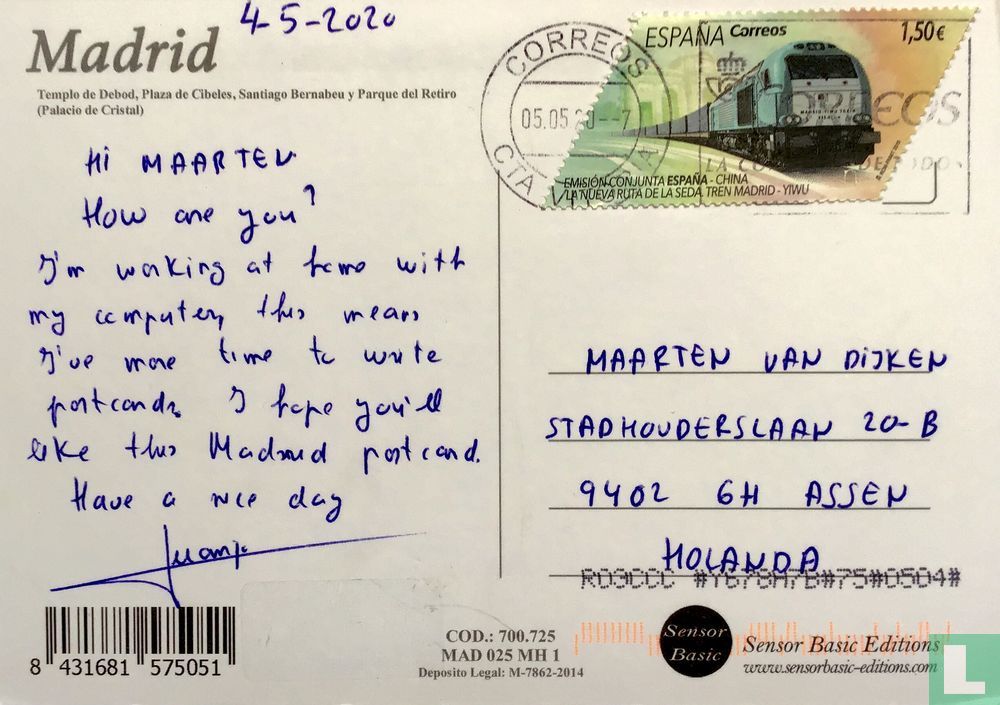 4-5-2020
Madrid
Templo de Debod, Plaza de Cibeles, Santiago Bernabeu y Parque del Retiro
(Palacio de Cristal)
Hi MAARTEN
How are you?
I'm working at home with
my computer, this means
I've more time to write
postcards. I hope you'll
like this Madrid postcard.
Have a nice day
Juanjo
8 431681 575051
COD.: 700.725
MAD 025 MH 1
Deposito Legal: M-7862-2014
ESPAÑA Correos 1,50€
EMISIÓN CONJUNTA ESPAÑA - CHINA
LA NUEVA RUTA DE LA SEDA. TREN MADRID - YIWU
CORREOS
05.05
CTA
CORREOS
MAARTEN VAN DIJKEN
STADHOUDERSLAAN 20-B
9402 GH ASSEN
HOLANDA
Sensor
Basic
Sensor Basic Editions
www.sensorbasic-editions.com
L